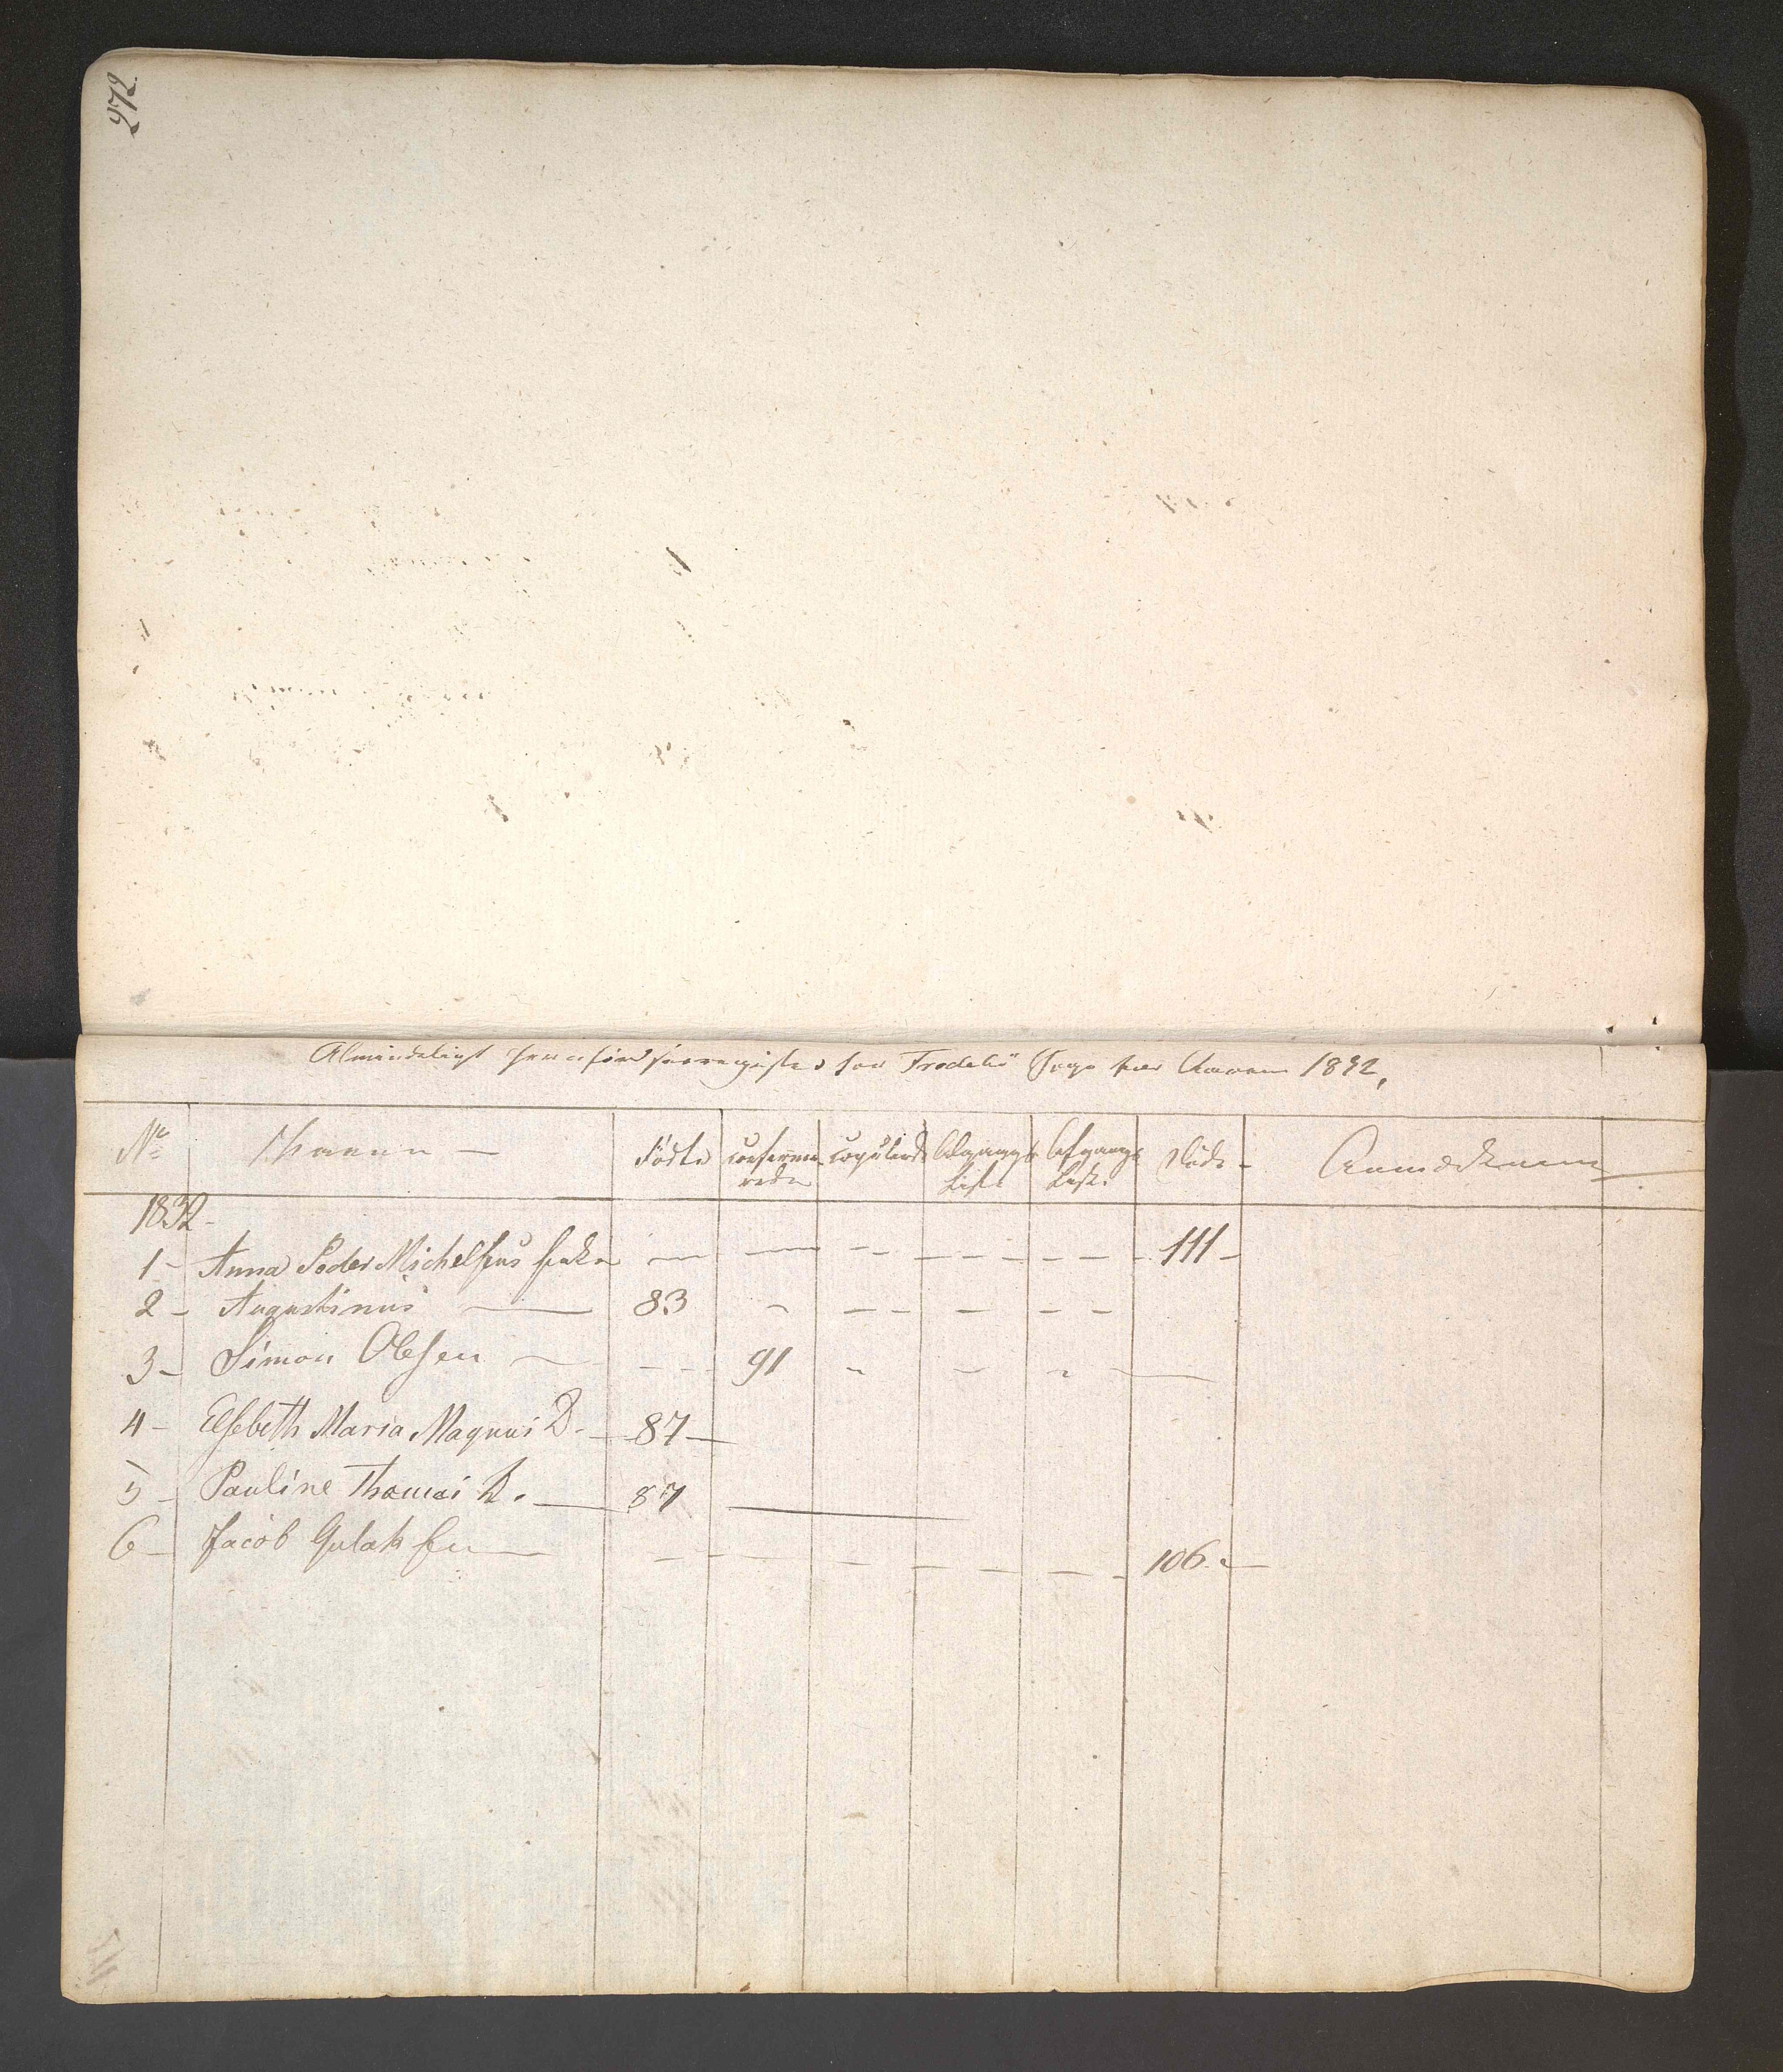 272.
Almindeligt jævnførelsesregister for Trodele Sogn for Aaren 1832,
No Navne — Födte confirmerede copulerede Tilgangs Liste Afgangs Liste Döde - Anmærkning
1832-
1 - Anna Peder Michelsens — — -- --- -- - 111 -
2 - Augustinus — 83 - -- - --
3 - Simon Olesen — --- 91 - - - —
4 - Elsebeth Maria Magnus D. - 87 -
5 - Pauline Thomas D. — 87 —
6 - Jacob Gulaksen — - - - - - - 106. -